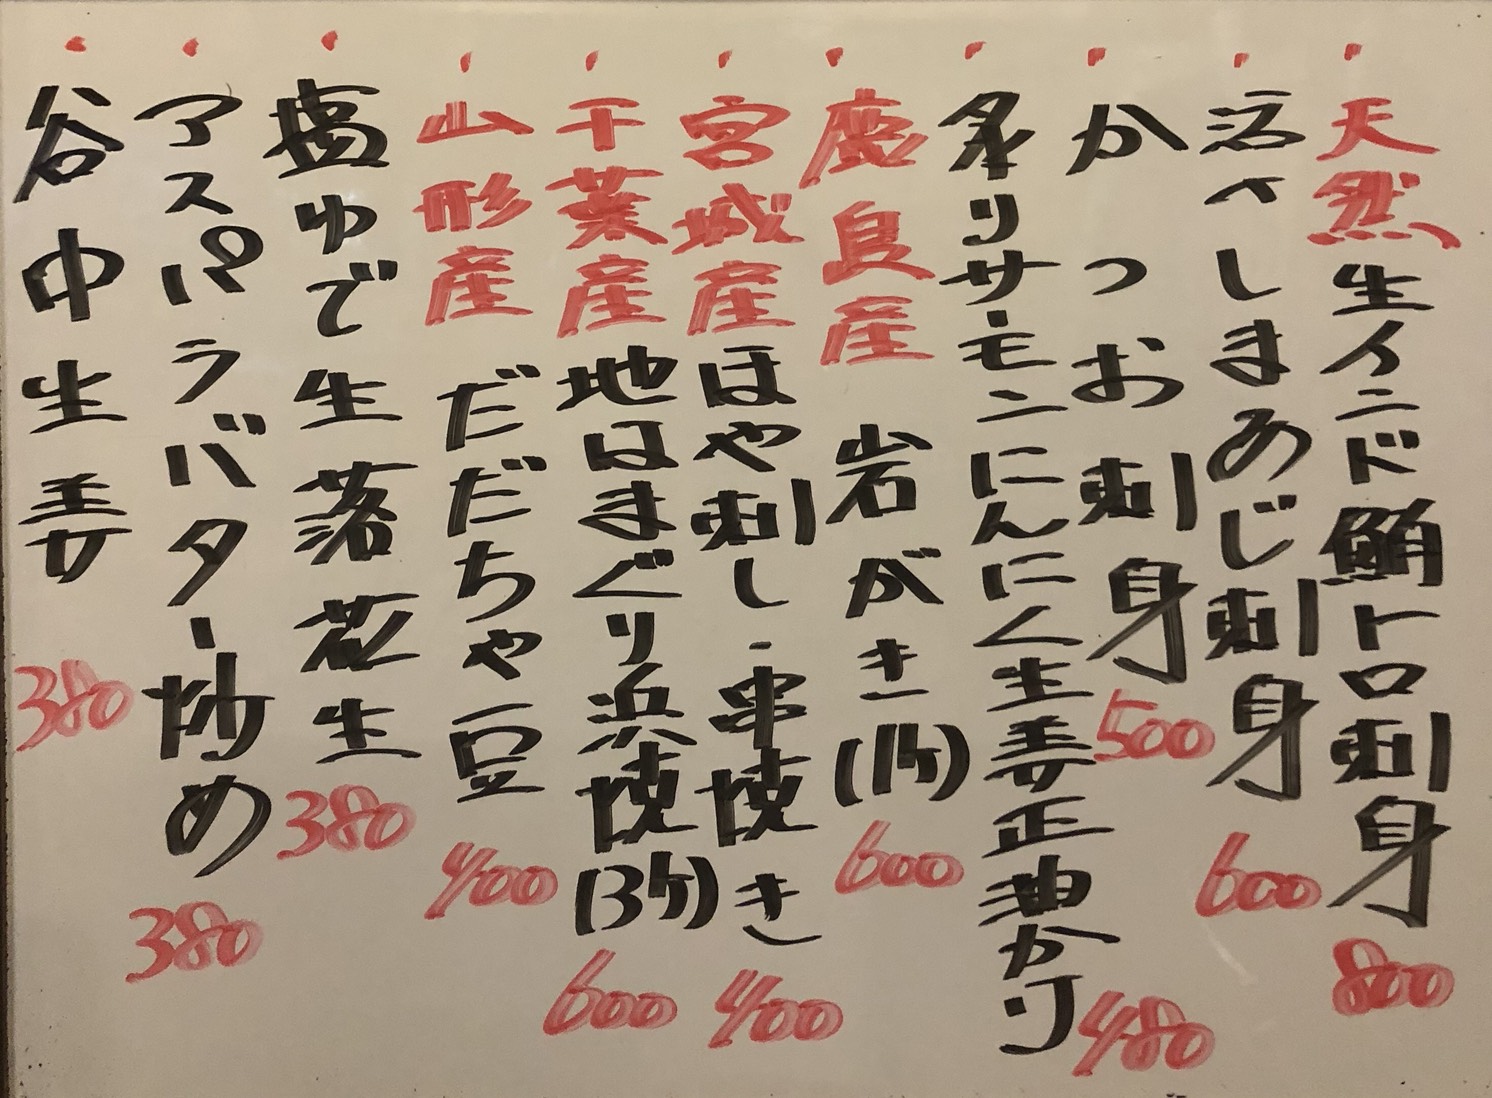 ・天然生インド鮪トロ刺身 800
・活〆しまあじ刺身 600
・かつお刺身 500
・炙りサーモンにんにく生姜正油かけ 480
・鹿島産 岩がき(1ケ) 600
・宮城産ほや刺し・串焼き 400
・千葉産地はまぐり浜焼(3ケ) 600
・山形産 だだちゃ豆 400
・塩ゆで生落花生 380
・アスパラバター炒め 380
・谷中生姜 380